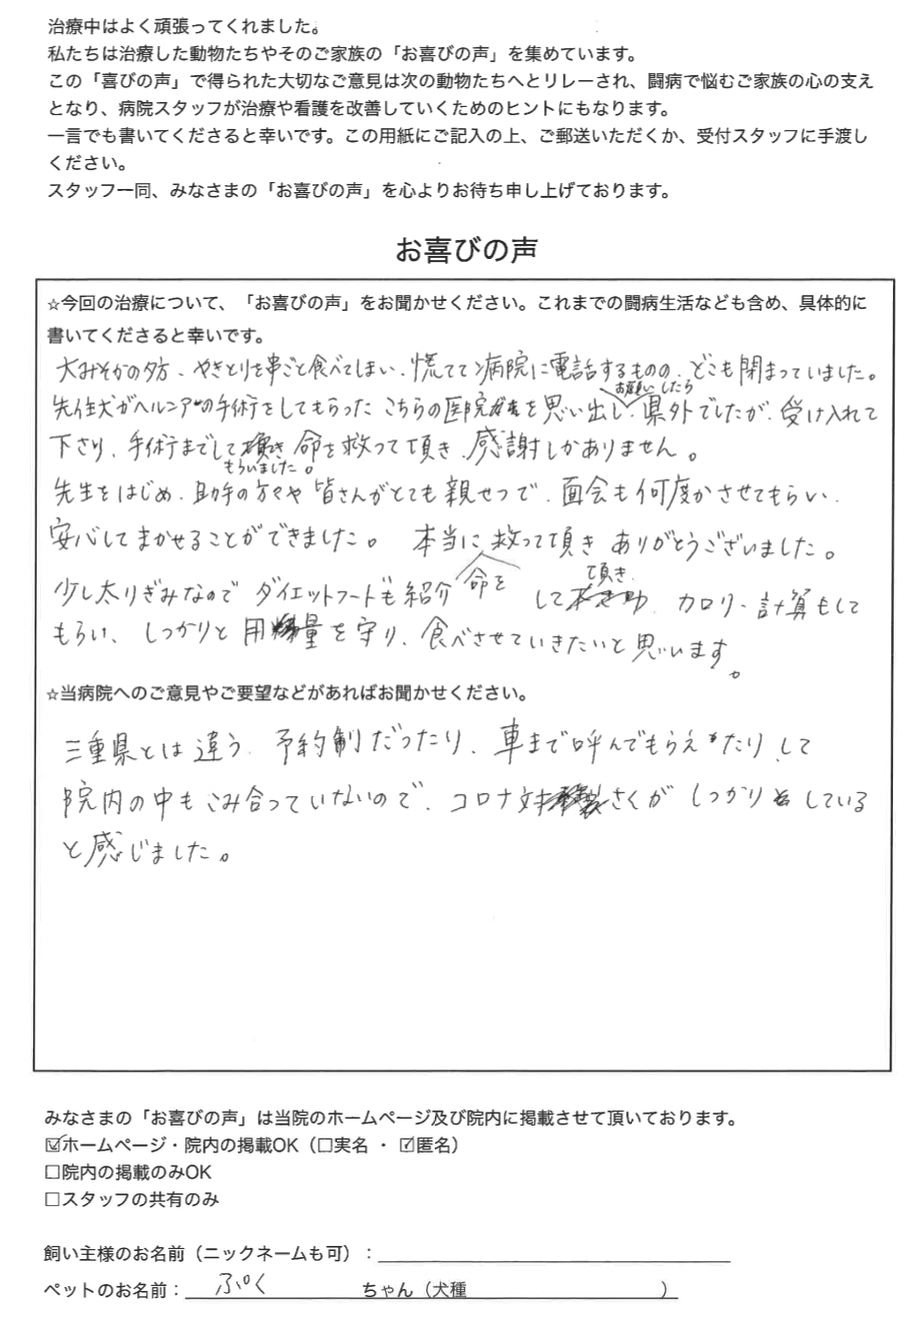 治療中はよく頑張ってくれました。
私たちは治療した動物たちやそのご家族の「お喜びの声」を集めています。
この「喜びの声」で得られた大切なご意見は次の動物たちへとリレーされ、闘病で悩むご家族の心の支え
となり、病院スタッフが治療や看護を改善していくためのヒントにもなります。
一言でも書いてくださると幸いです。この用紙にご記入の上、ご郵送いただくか、受付スタッフに手渡し
ください。
スタッフ一同、みなさまの「お喜びの声」を心よりお待ち申し上げております。
お喜びの声
☆今回の治療について、「お喜びの声」をお聞かせください。これまでの闘病生活なども含め、具体的に
書いてくださると幸いです。
大みそかの夕方、やきとりを串ごと食べてしまい、慌てて病院に電話するものの、どこも閉まっていました。
先住犬がヘルニアの手術をしてもらったこちらの医院を思い出し、お願いしたら県外でしたが、受け入れて
下さり、手術までしてもらいました。命を救って頂き、感謝しかありません。
先生をはじめ、助手の方々や皆さんがとても親せつで、面会も何度かさせてもらい、
安心してまかせることができました。 本当に命を救って頂きありがとうございました。
少し太りぎみなのでダイエットフードも紹介して頂き、カロリー計算もして
もらい、しっかりと用量を守り、食べさせていきたいと思います。
☆当病院へのご意見やご要望などがあればお聞かせください。
三重県とは違う、予約制だったり、車まで呼んでもらえたりして
院内の中もこみ合っていないので、コロナ対さくがしっかりしている
と感じました。
みなさまの「お喜びの声」は当院のホームページ及び院内に掲載させて頂いております。
☑ホームページ・院内の掲載OK（□実名 ・ ☑匿名）
□院内の掲載のみOK
□スタッフの共有のみ
飼い主様のお名前（ニックネームも可）：
ペットのお名前： ぷく ちゃん（犬種 ）